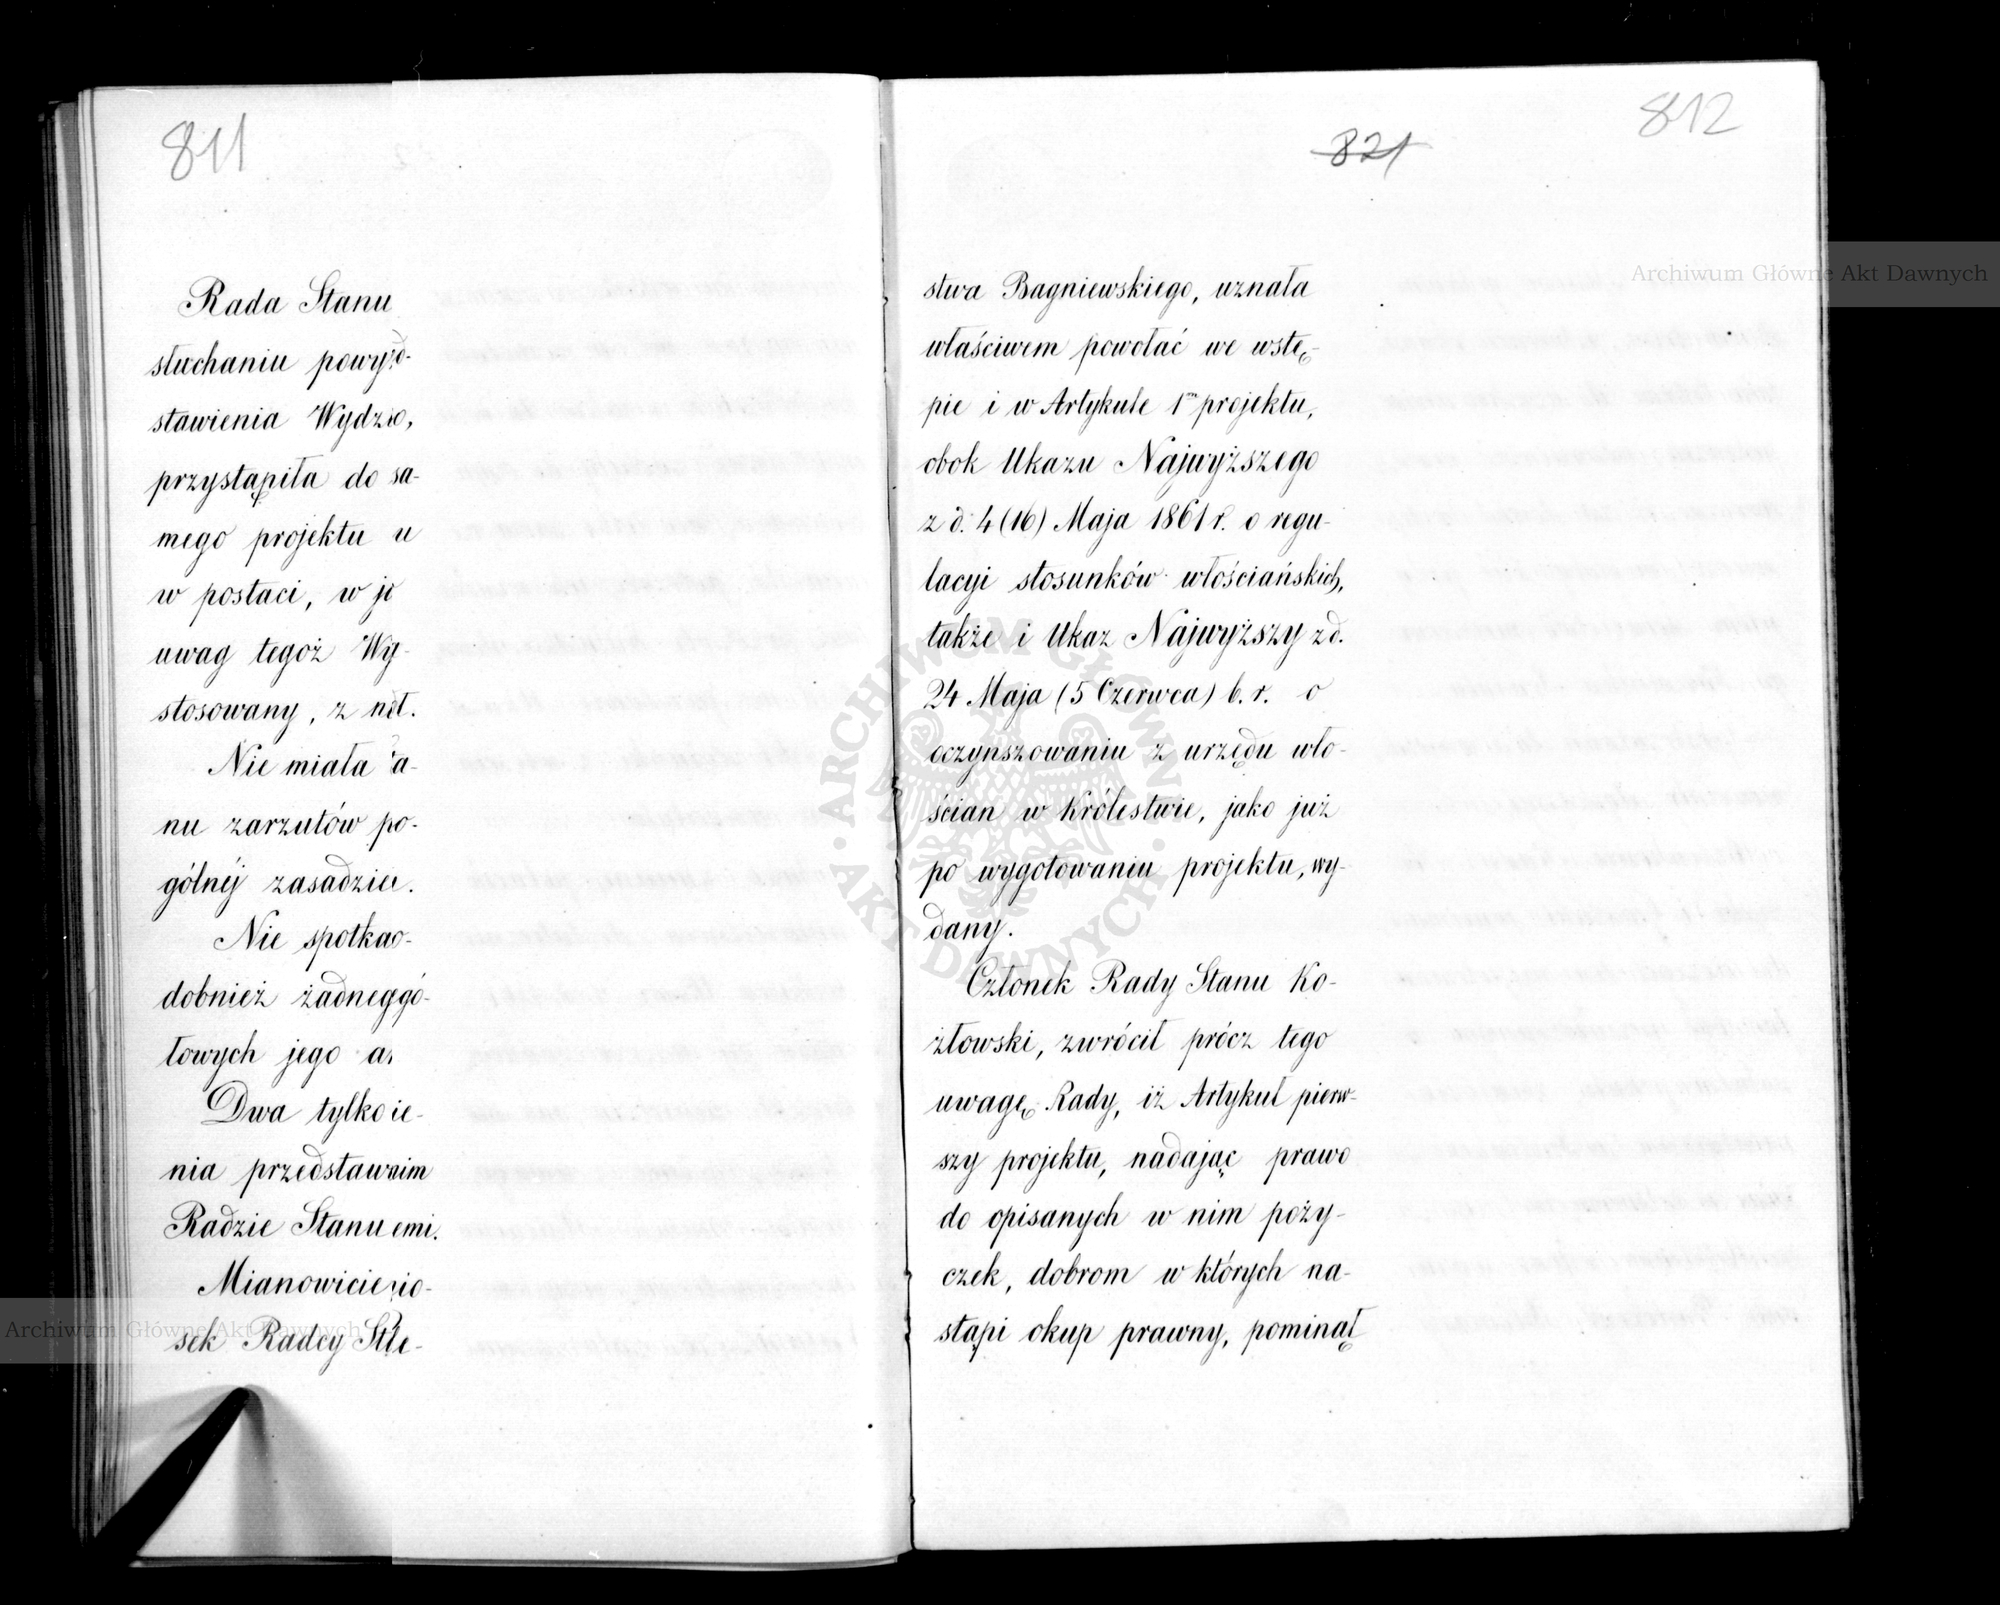 811
Rada Stanu
słuchaniu
stawienia
przystąpiła do sa-
mego projektu
w postaci, w
uwag tegoż Wy-
stosowany, z
Nie miała
nu zarzutów po-
gólnéj
Nie
dobnież
towych jego
Dwa tylko
nia
Radzie Stanu
Mianowicie
sek Radcy
812
821
stwa Bagniewskiego, uznała
właściwem powołać we wstę-
pie i w Artykule 1m projektu,
obok Ukazu Najwyższego
z d. 4 (16) Maja 1861 r. o regu-
lacyi stosunków włościańskich,
także i Ukaz Najwyższy z d.
24 Maja (5 Czerwca) b. r. o
oczynszowaniu z urzędu wło-
ścian w Królestwie, jako już
po wygotowaniu projektu, wy-
dany.
Członek Rady Stanu Ko-
złowski, zwrócił prócz tego
uwagę Rady, iż Artykuł pierw-
szy projektu, nadając prawo
do opisanych w nim poży-
czek, dobrom w których na-
stąpi okup prawny, pominął
Archiwum Główne Akt Dawnych
Archiwum Główne Akt Dawnych
ARCHIWUM GŁÓWNE AKT DAWNYCH